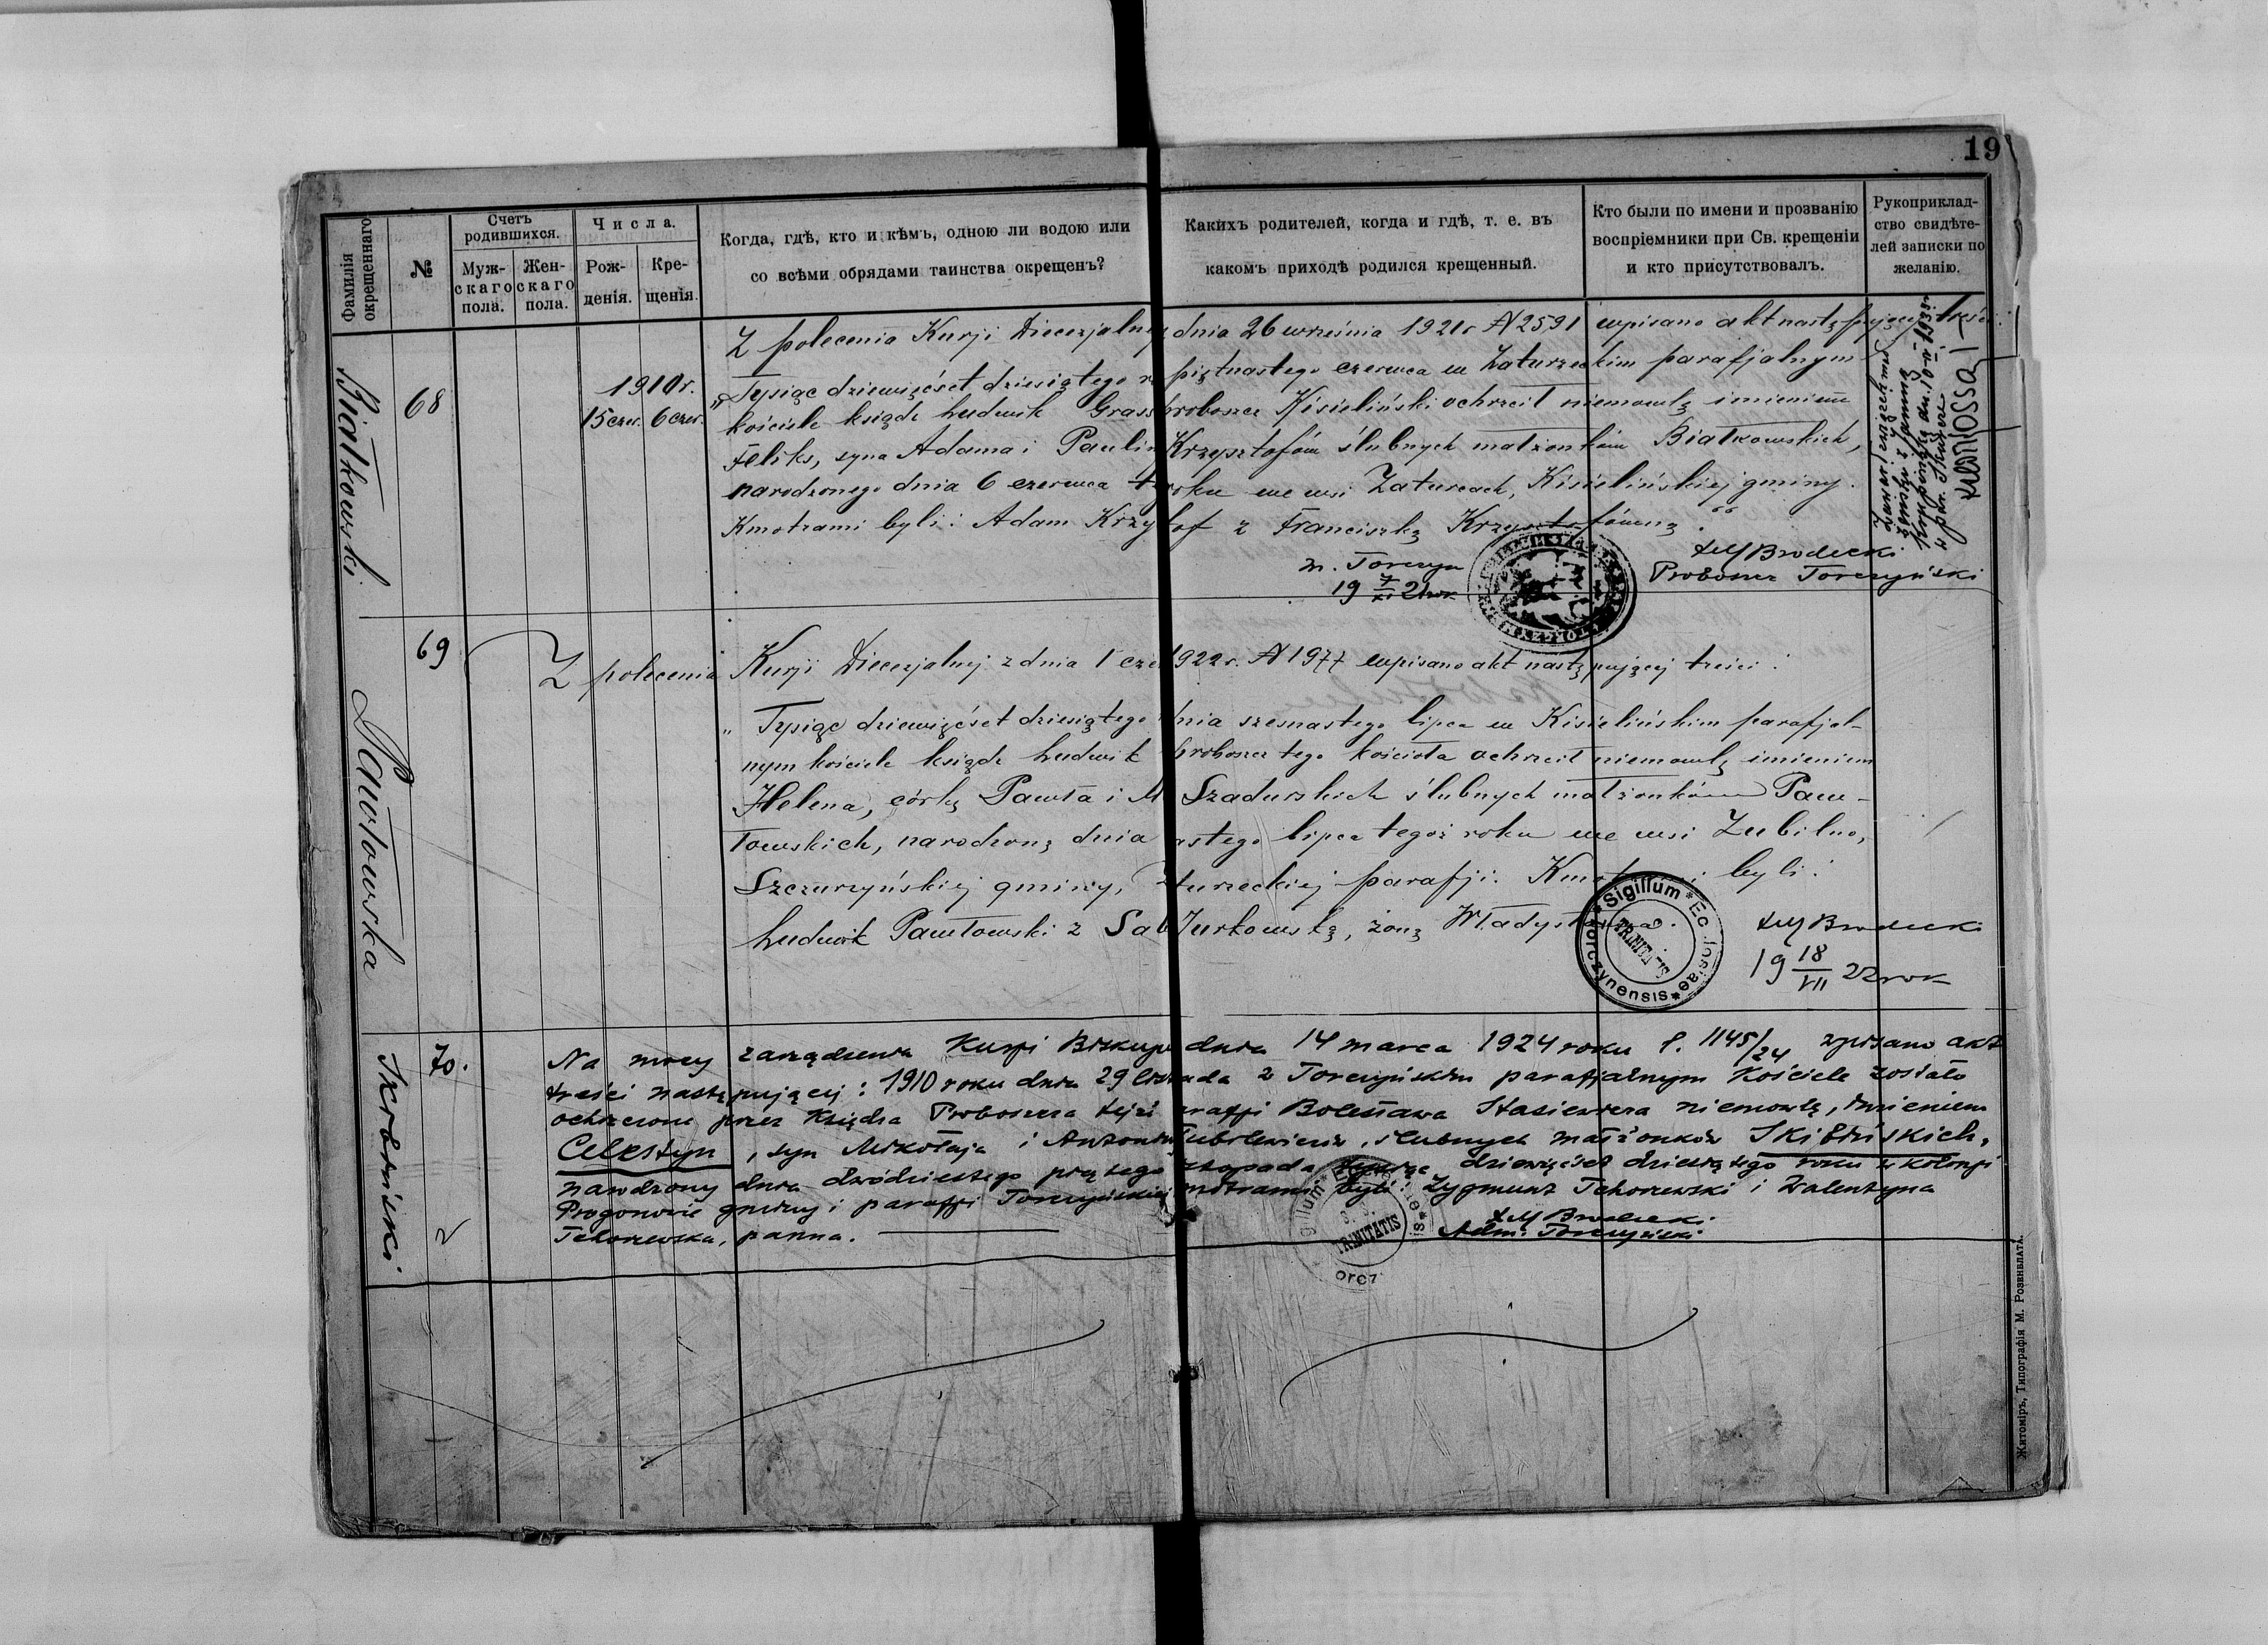 19
Фамилія окрещеннаго
№
Счетъ родившихся.
Муж-скаго пола.
Жен-скаго пола.
Числа.
Рож-денія.
Кре-щенія.
Когда, гдѣ, кто и кѣмъ, одною ли водою или
со всѣми обрядами таинства окрещенъ?
Какихъ родителей, когда и гдѣ, т. е. въ
какомъ приходѣ родился крещенный.
Кто были по имени и прозванію
воспріемники при Св. крещеніи
и кто присутствовалъ.
Рукоприклад-
ство свидѣте-
лей записки по
желанію.
Białkowski
68
1910 r.
15 czer. 6 czer.
Z polecenia Kurji Diecezjalnej dnia 26 września 1921 r. N 2591 wpisano akt następującej treści:
„Tysiąc dziewięćset dziesiątego r. piętnastego czerwca w Zaturzeckim parafjalnym
kościele ksiądz Ludwik Grass proboszcz Kisieliński ochrzcił niemowlę imieniem
Feliks, syna Adama i Paulin Krzysztofów ślubnych małżonków Białkowskich,
narodzonego dnia 6 czerwca t roku we wsi Zaturcach, Kisielińskiej gminy.
Kmotrami byli: Adam Krzy tof z Franciszką Krzysztofówną."
m. Torczyn
19 7/XI 21 rok
Brodecki
Proboszcz Torczyński
Zawarł związek mał
żeński z panną
w par. Skurcze
Pawłowska
69
Z polecenia Kurji Diecezjalnej z dnia 1 cze 1922 r. N 1977 wpisano akt następującej treści:
„Tysiąc dziewięćset dziesiątego dnia szesnastego lipca w Kisielińskim parafjal-
nym kościele ksiądz Ludwik proboszcz tego kościoła ochrzcił niemowlę imieniem
Helena, córkę Pawła i M Szadurskich ślubnych małżonków Paw-
łowskich, narodzoną dnia astego lipca tegoż roku we wsi Zubilno,
Szczurzyńskiej gminy, Z turzeckiej parafji. Kmotrami byli:
Ludwik Pawłowski z Sab Jurkowską, żoną Władysława.
Sigillum * Ecclesiae * Torczynensis
Brodecki
19 18/VII 22 rok
Skibiński
70.
Na mocy zarządzenia Kurji Biskup dnia 14 marca 1924 roku l. 1145/24 wpisano akt
treści następującej: 1910 roku dnia 29 listopada w Torczyńskim parafjalnym Kościele zostało
ochrzczone przez Księdza Proboszcza tejże parafji Bolesława Stasiewicza niemowlę, imieniem
Celestyn, syn Mikołaja i Antoni ślubnych małżonków Skibińskich,
narodzony dnia dwódziestego piątego listopada tysiąc dziewięćset dziesiątego roku w kolonji
gminy i parafji Torczyńskiej motrami byli: Zygmunt Tchorzewski i Walentyna
Tchorzewska, panna.
TRINITATIS
Brodecki
Adm. Torczyński
Житоміръ, Типографія М. Розенблата.